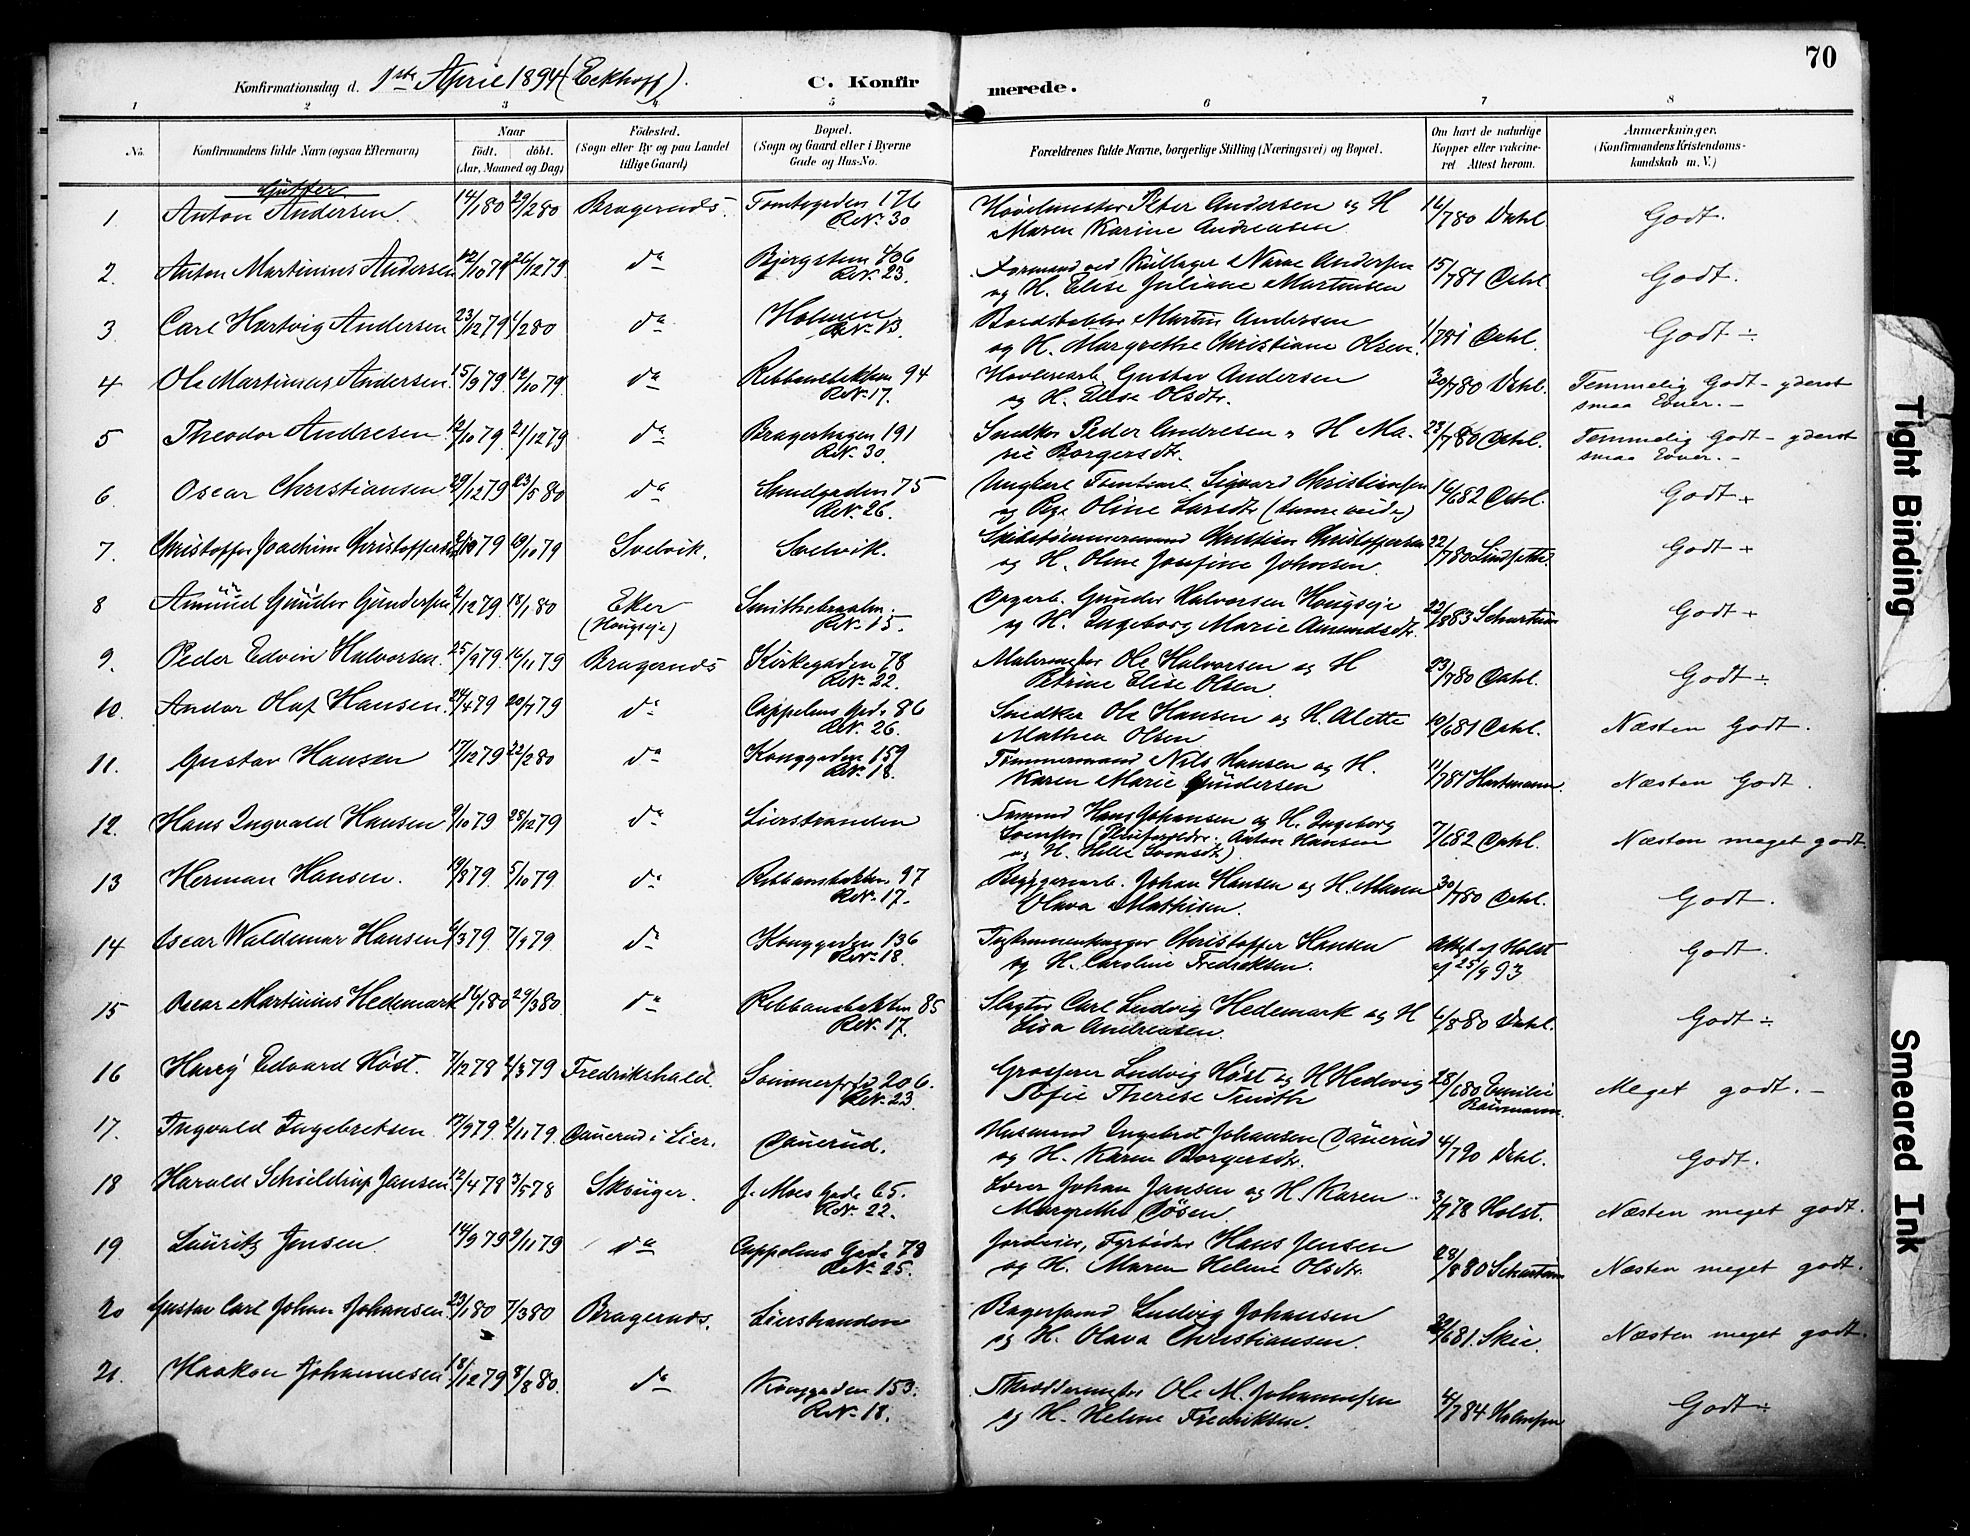 70
Konfirmationsdag d. 1ste April 1894 (Eckhoff).
C. Konfirmerede.
1 2 3 4 5 6 7 8
No. Konfirmandens fulde Navn (ogsaa Efternavn) Naar født. døbt. (Aar, Maaned og Dag) Fødested. (Sogn eller By og paa Landet tillige Gaard) Bopæl. (Sogn og Gaard eller i Byerne Gade og Hus-No. Forældrenes fulde Navne, borgerlige Stilling (Næringsvei) og Bopæl. Om havt de naturlige Kopper eller vakcineret Attest herom. Anmærkninger. (Konfirmandens Kristendomskundskab m. V.)
Gutter
1 Anton Andersen. 14/1 80 29/2 80 Bragernæs. Tomtegaden 176 Peter Andersen og H Godt.
RNo 30 Maren Karine Andreasen 16/7 80 Dahl.
2. Anton Martinius Andersen 12/10 79 26/12 79 do Bjergstien 406 Andersen 15/7 81 Dahl. Godt.
RNo 23. og H. Elise Juliane Martinsen
3 Carl Hartvig Andersen 23/12 79 1/2 80 do Holmen Martin Andersen 1/7 81 Dahl. Godt ÷
RNo 13. og H. Margrethe Christiane Olsen.
4 Ole Martinius Andersen. 15/9 79 19/10 79 do 94 Gustav Andersen 30/7 80 Dahl. Temmelig Godt - yderst
RNo 17. og H. Elise Olsdtr. smaa Evner. -
5 Theodor Andresen 12/10 79 21/12 79 do Bragerhagen 191 Snedker Peder Andresen H Ma- 23/7 80 Dahl. Temmelig Godt - yderst
RNo 30. rie Borgersdtr. smaa Evner. -
6 Oscar Christiansen 29/12 79 23/5 80 do Strandgaden 75 Ungkarl Sigvard Christiansen 16/6 82 Dahl. Godt +
RNo 26. og Pige Oline Larsdtr
7. Christoffer Joachim Christoffersen 79 19/10 79 Svelvik. Svelvik. Skibstømmermand Christian Christoffersen 22/7 80 Godt +
og H. Oline Josefine Johnsen.
8 Amund Gunder Gundersen 2/12 79 18/1 80 Eker Gunder Halvorsen Hougseje 22/8 83 Godt +
(Hougseje) RNo 15. og H. Ingeborg Marie Amundsdtr.
9. Peder Edvin Halvorsen. 25/9 79. 16/11 79 Bragernæs Kirkegaden 78 Malermester Ole Halvorsen og H 23/7 80 Dahl. Godt ÷
RNo 22. Petrine Elise Olsen.
10. Andor Olaf Hansen. 24/4 79 20/7 79 do Cappelens Gade 86 Snedker Ole Hansen og H. Alette 10/6 81 Dahl. Næsten Godt.
RNo 26. Mathea Olsen
11. Gustav Hansen 17/12 79 22/2 80 do Konggaden 159 Tømmermand Nils Hansen og H. 11/7 81 Hartmann. Næsten Godt.
RNo 18. Karen Marie Gundersen
12. Hans Ingvald Hansen 9/10 79 28/12 79 do Lierstranden Sømand Hans Johansen og H. Ingeborg 7/6 82 Dahl. Næsten meget godt
(Pleieforældre: Anton Hansen
og H. Helle )
13 Herman Hansen. 19/8 79. 5/10 79 do 97 Johan Hansen og H. Maren 30/7 80 Dahl. Godt.
RNo 17. Olava Mathisen.
14 Oscar Waldemar Hansen 6/3 79. 79. do Konggaden 136 Christoffer Hansen Attest af Holst Godt.
RNo 18. og H. Caroline Fredriksen. af 25/9 93
15 Oscar Martinius Hedemark 16/1 80 29/3 80 do 85 Slagter Carl Ludvig Hedemark og H 6/8 80 Dahl. Godt ÷
RNo 17. Lisa Andreasen.
16 Harry Edvard Høst. 7/12 78 79 Fredrikshald. 206. Grosserer Ludvig Høst og H Hedevig 28/6 80 Emilie Meget godt. -
RNo 23. Sofie Therese
17. Ingvald Ingebretsen 17/9 79 2/11 79. Dauerud i Lier. Dauerud. Husmand Ingebret Johansen Dauerud 4/7 90 Dahl. Godt.
og H. Karen Borgersdtr.
18 Harald Schieldrup Jansen 12/4 78 3/5 78 Skouger. J. Moes Gade 65. Lærer Johan Jansen og H. Karen 3/7 78 Holst. Næsten meget godt.
RNo 22. Margrethe
19 Lauritz Jensen 14/9 79 9/11 79 do Cappelens Gade 78 Fyrbøder Hans Jensen 28/8 80 Næsten meget godt.
RNo 25. og H. Maren Helene Olsdtr.
20 Gustav Carl Johan Johansen 23/1 80 7/3 80 Bragernæs. Lierstranden Ludvig Johansen 6 81. Skie. Næsten meget godt.
og H. Olava Christiansen.
21. Haakon Johannesen 18/12 79 8/8 80. do Konggaden 153. Skræddermester Ole M. Johannesen 4/7 84 Godt ÷
RNo 18. og H. Helene Fredriksen.
Tight Binding
Smeared Ink